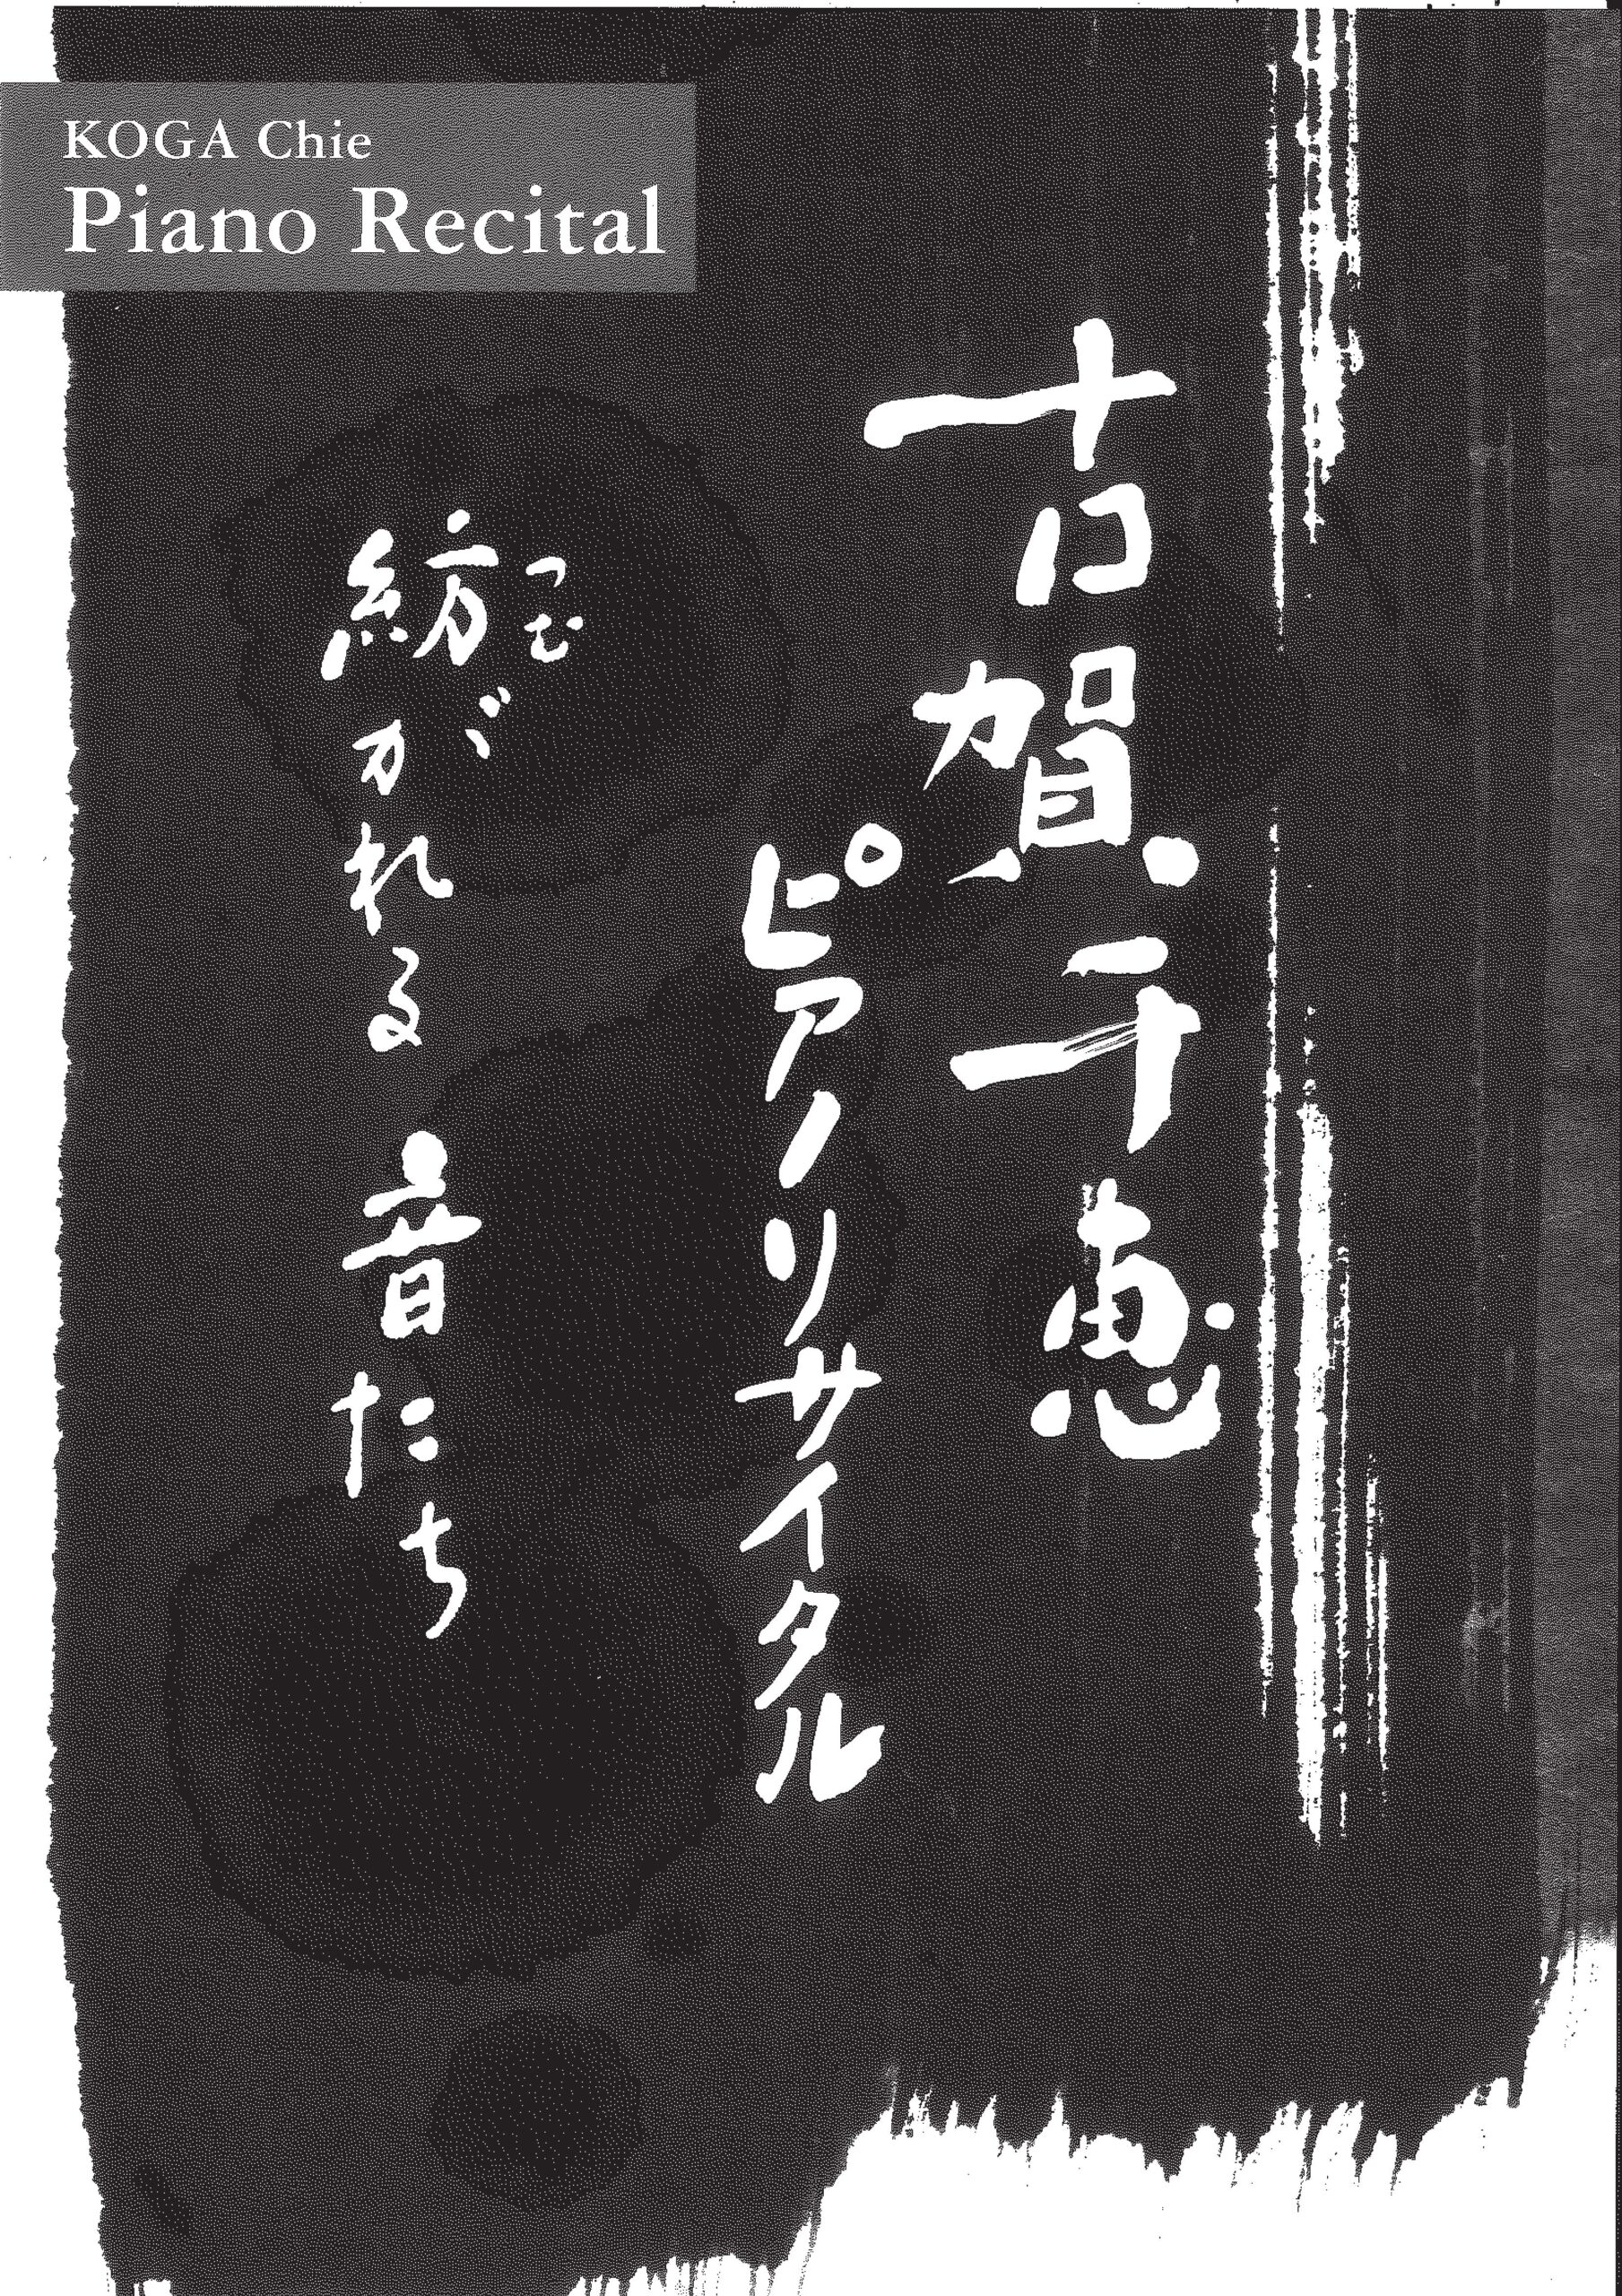 KOGA Chie
Piano Recital
古賀千恵
ピアノリサイタル
紡がれる音たち
つむ